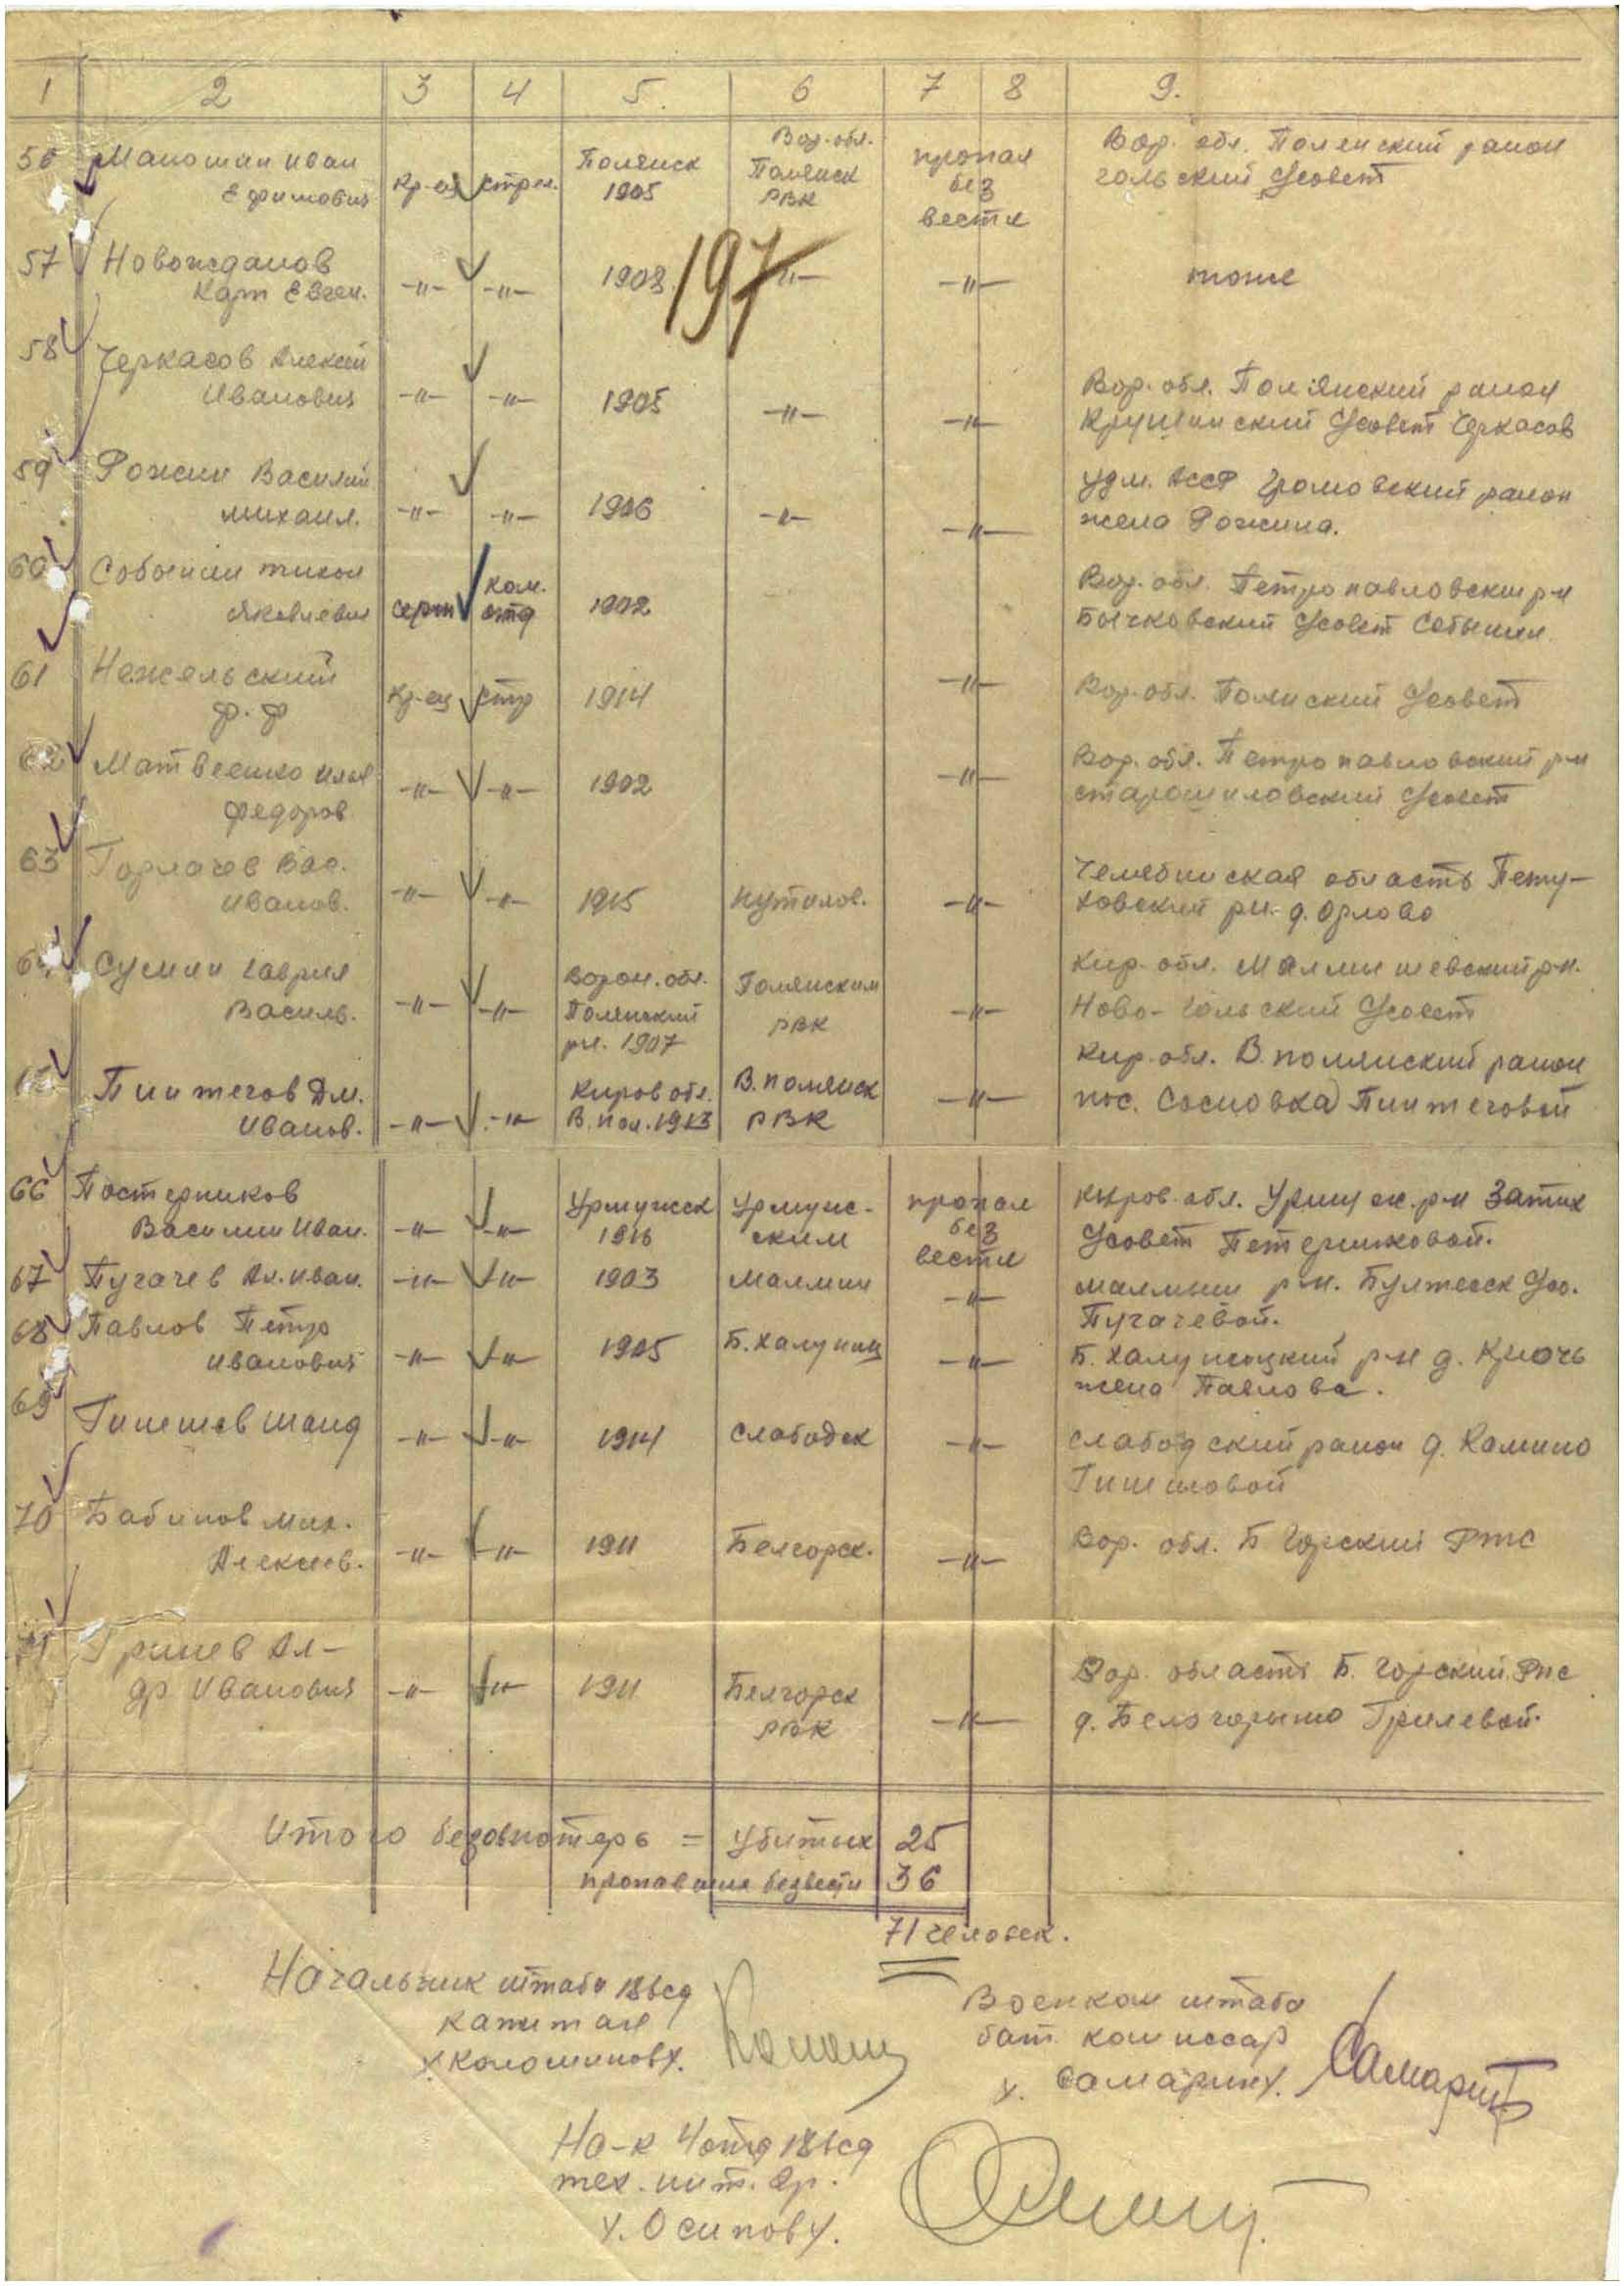 1 2 3 4 5. 6 7 8 9.
56 Маношин Иван Ефимович кр-ец стрел. Полянск 1905 Вор. обл. Полянск РВК пропал без вести Вор. обл. Полянский район
гольский с/совет
57 Новожданов
Карп Евген. -"- -"- 1908 -"- -"- тоже
197
58 Черкасов Алексей
Иванович -"- -"- 1905 -"- -"- Вор. обл. Полянский район
с/совет Черкасов
59 Рожин Василий
Михаил. -"- -"- 1906 -"- -"- Удм. АССР район
жена Рожина.
60 Собынин Тихон
Яковлевич серж ком. отд 1902 Вор. обл. Петропавловский р-н
Бычковский с/совет Собынин.
61 Нежельский
Ф. Ф кр-ец стр 1914 -"- Вор. обл. с/совет
62 Матвеенко Илья
Федоров -"- -"- 1902 -"- Вор. обл. Петропавловский р-н
с/совет
63 Горлачев Вас.
Иванов. -"- -"- 1915 -"- Челябинская область Пету-
ховский рн. д. Орлово
64 Сумин Гаврил
Василь. -"- -"- Ворон. обл. Полянский рн. 1907 Полянским РВК -"- Кир. обл. р-н.
Ново-Гольский с/совет
65 Пинтегов Дм.
Иванов. -"- -"- Киров обл. В. Пол. 1913 В. Полянск РВК -"- Кир. обл. В. Полянский район
пос. Сосновка Пинтеговой
66 Постерников
Василий Иван. -"- -"- Уржумск 1916 Уржумс-ким пропал без вести Киров. обл. р-н
с/совет
67 Пугачев Ал. Иван. -"- -"- 1903 Малмыж -"- Малмыж р-н. с/со.
Пугачевой.
68 Павлов Петр
Иванович -"- -"- 1905 Б. Халуниц -"- Б. Халуницкий р-н д. Ключь
жена Павлова.
69 -"- -"- 1914 Слободск -"- Слободский район д.
70 Бабинов Мих.
Алексеев. -"- -"- 1911 Белгорск. -"- Вор. обл. Б Горский
71 Гринев Ал-
др Иванович -"- -"- 1911 Белгорск РВК -"- Вор. область Б. Горский
д. Белогорьино Гриневой.
Итого = убитых 25
пропавших безвести 36
71 человек.
Начальник штаба 186сд
капитан
Военком штаба
бат. комиссар
/Самарин/. Самарин
На-к 4 отд 186сд
тех. инт. 2р.
/Осипов/.